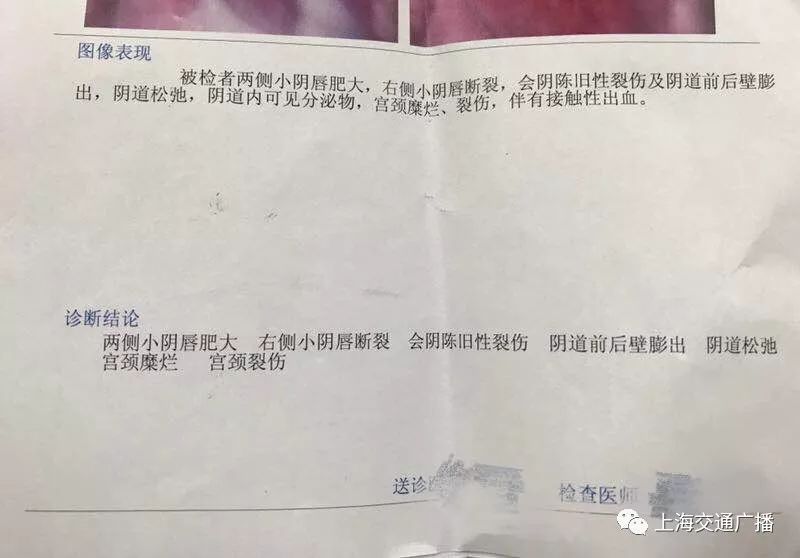 图像表现
被检者两侧小阴唇肥大，右侧小阴唇断裂，会阴陈旧性裂伤及阴道前后壁膨
出，阴道松弛，阴道内可见分泌物，宫颈糜烂、裂伤，伴有接触性出血。
诊断结论
两侧小阴唇肥大 右侧小阴唇断裂 会阴陈旧性裂伤 阴道前后壁膨出 阴道松弛
宫颈糜烂 宫颈裂伤
送诊 检查医师
上海交通广播